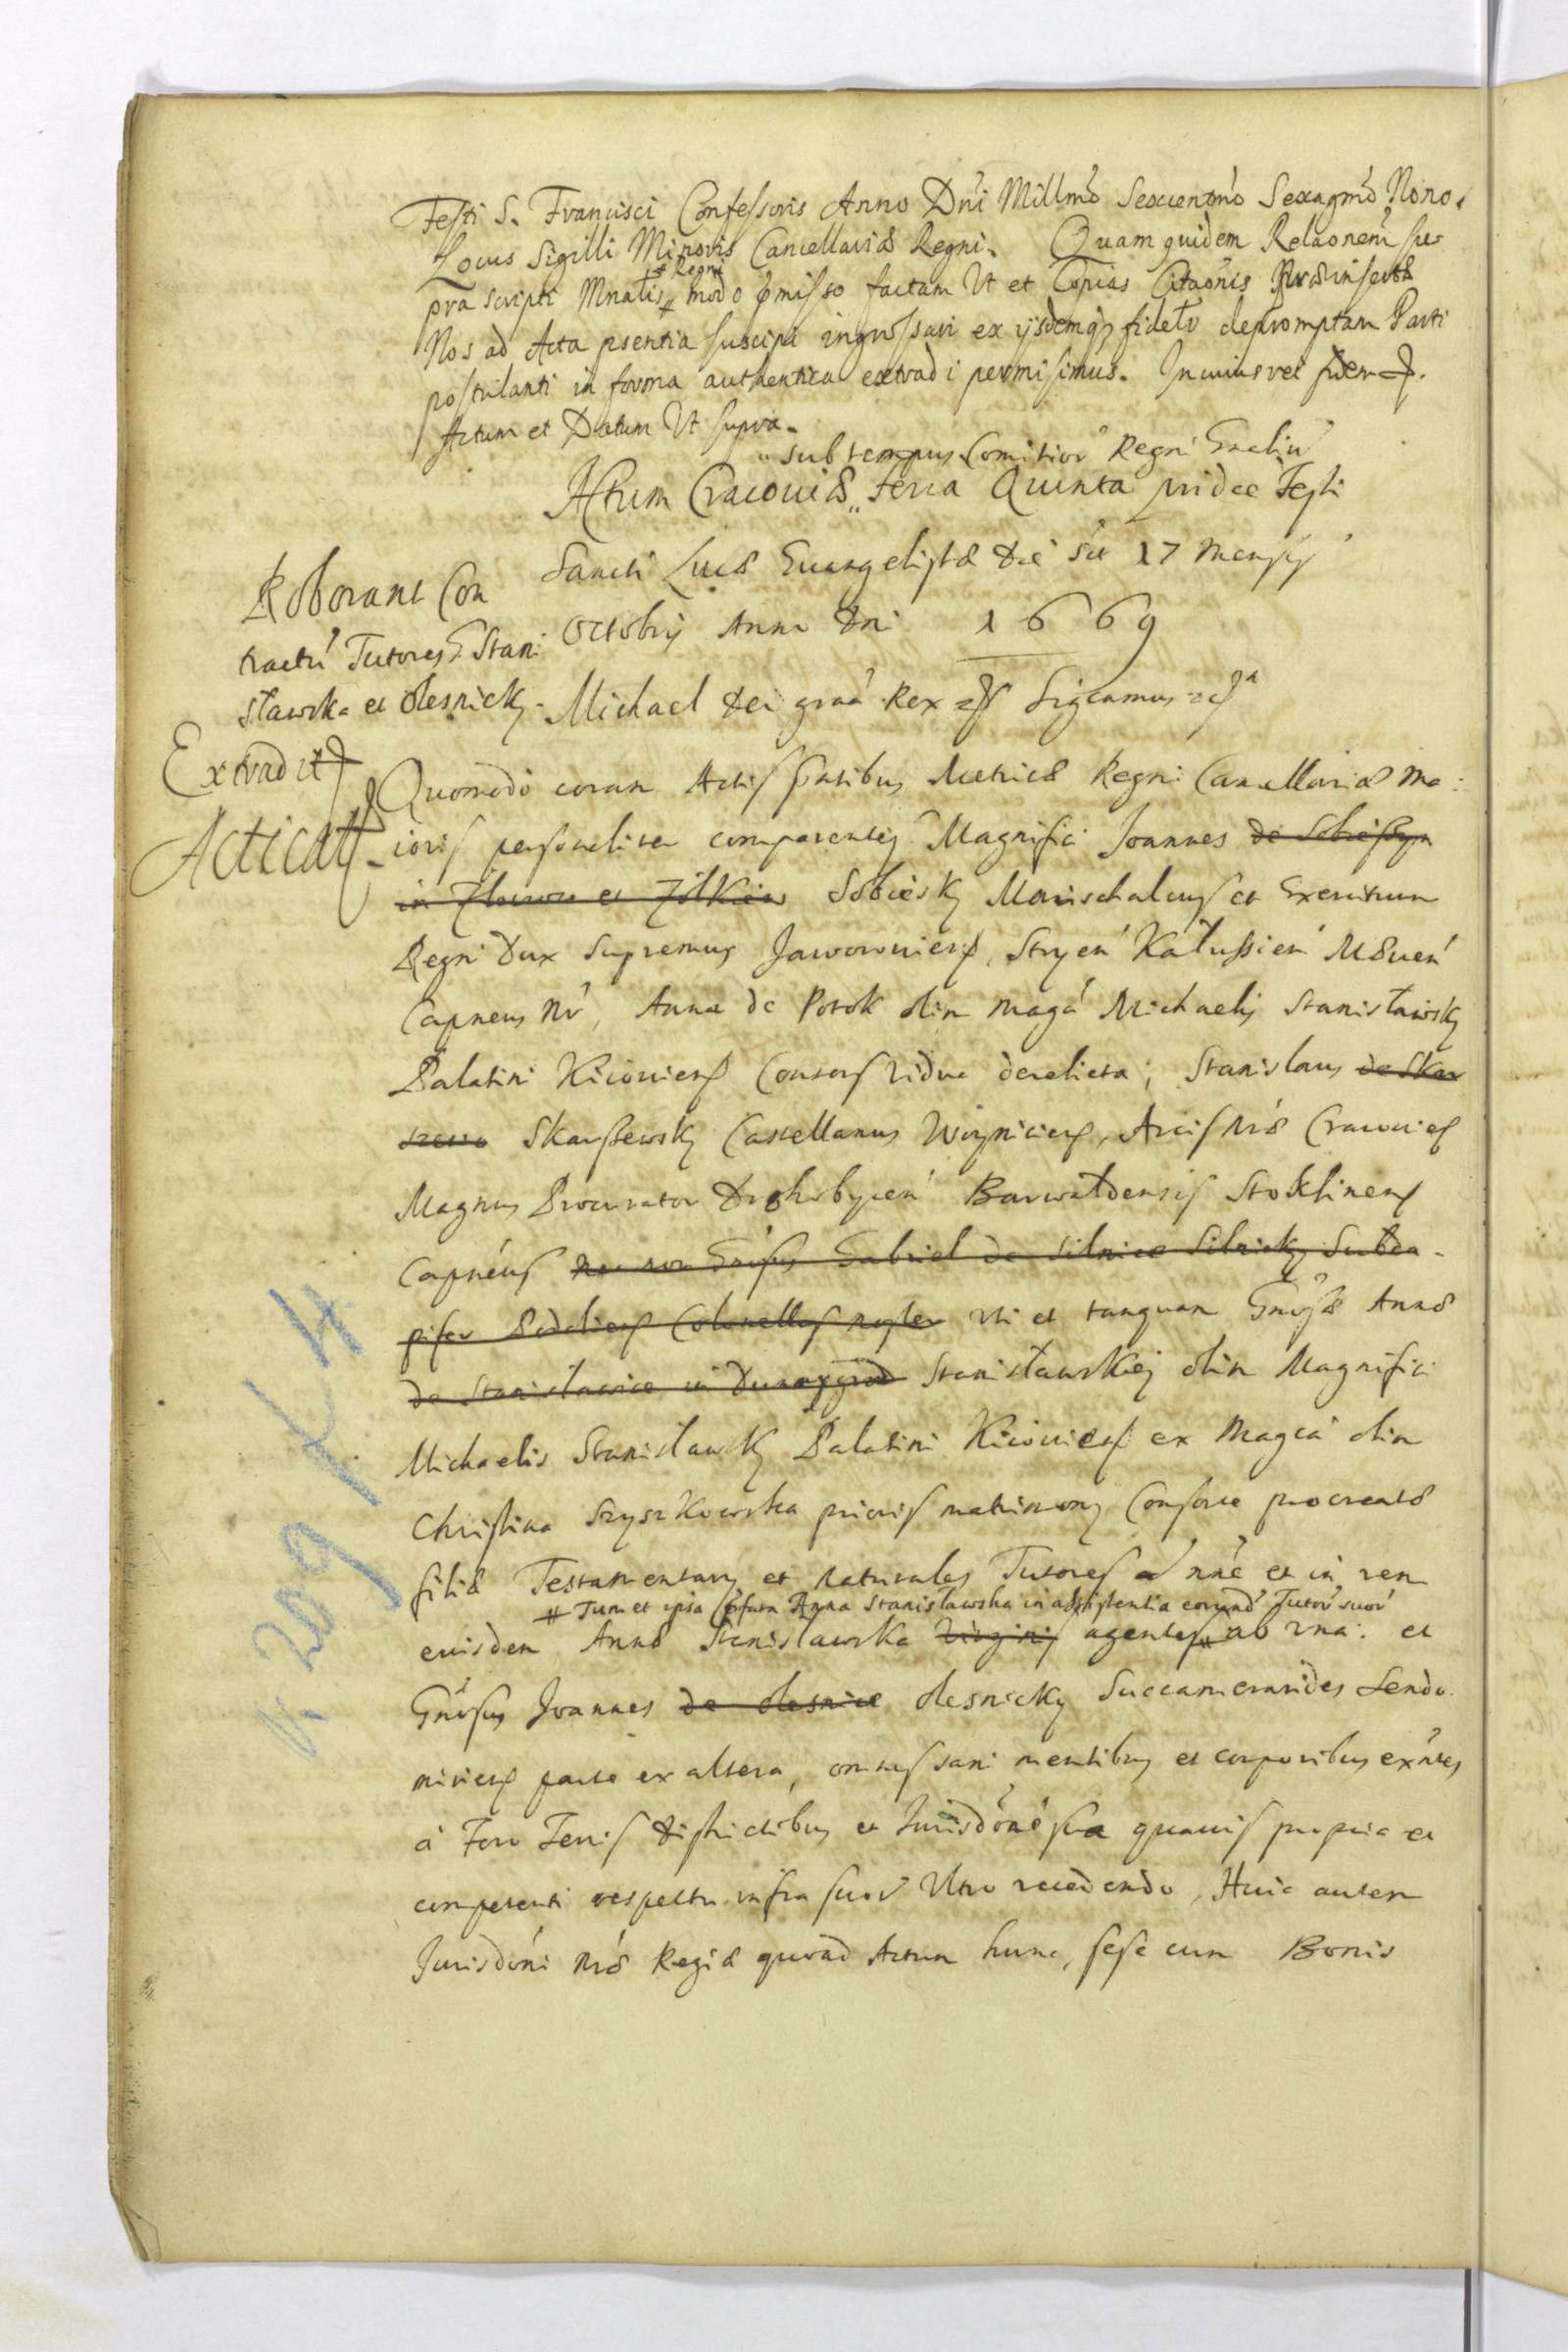 Festi S. Francisci Confessoris Anno Dni Millmo Sexcentmo Sexagmo Nono.
Locus Sigilli Minoris Cancellariæ Regni. Quam quidem Relaonem su
pra scripti Mnalis # modo pmisso factam Ut et Copias Citaonis
# Regni
Nos ad Acta psentia suscipi ingrossari ex ijsdemq; fidelr depromptam Parti
postulanti in forma authentica extradi permisimus. In cuius rei fidem
Actum et Datum Ut supra.
„ sub tempus Comitior Regni Gnaliu
Actum Cracouiæ „ feria Quinta pridie Festi
Sancti Lucæ Euangelistæ Die sct 17 Mensis
Octobris Anno Dni 1669
Roborant Con
tractu Tutores G. Stani
sławska et Olesnicky.
Michael Dei graa Rex Significamus
Extradit
Acticat
Quomodo coram Actis pntibus Metricæ Regni Cancellariæ Ma:
ioris personaliter comparentes Magnifici Joannes de Sobieszyn
in Złoczow et Zołkiew Sobiesky Marischalcus et Exercituum
Regni Dux Supremus Jaworouiens, Stryen Kałussien Msuen
Capneus Nr, Anna de Potok olim Magci Michaelis Stanisławsky
Palatini Kiiouiens Consors Vidua derelicta; Stanislaus de Skar
szewo Skarszewsky Castellanus Woyniciens, Arcis Nræ Cracouies
Magnus Procurator Drohobycen Barwałdensis Stoklinens
Capneus nec non Gnrsus Gabriel de Silnice Silnicky Subda-
pifer Podoliens Colonellus noster uti et tanquam Gnrsæ Annæ
de Stanisławice in Dunaygrod Stanisławskiej olim Magnifici
Michaelis Stanisławsky Palatini Kiiouiens ex Magca olim
Christina Szyszkowska prioris matrimony Consorte procreatæ
filiæ Testamentary et naturales Tutores ac nne et in rem
# Tum et ipsa pfata Anna Stanisławska in adsistentia eorund Tutor suor
euisdem Annæ Stanisławska Virginis agentes # ab una: et
Gnrsus Joannes de Olesnice Olesnicky Succamerarides Sendo
miriens parte ex altera, omnes sani mentibus et corporibus exntes
à Foro Terris Districtibus et Jurisdone sua quauis propria et
competenti respectu infra scor Utro recedendo, Huic autem
Jurisdoni Nræ Regiæ quoad Actum hunc, sese cum Bonis
k 209 t 4